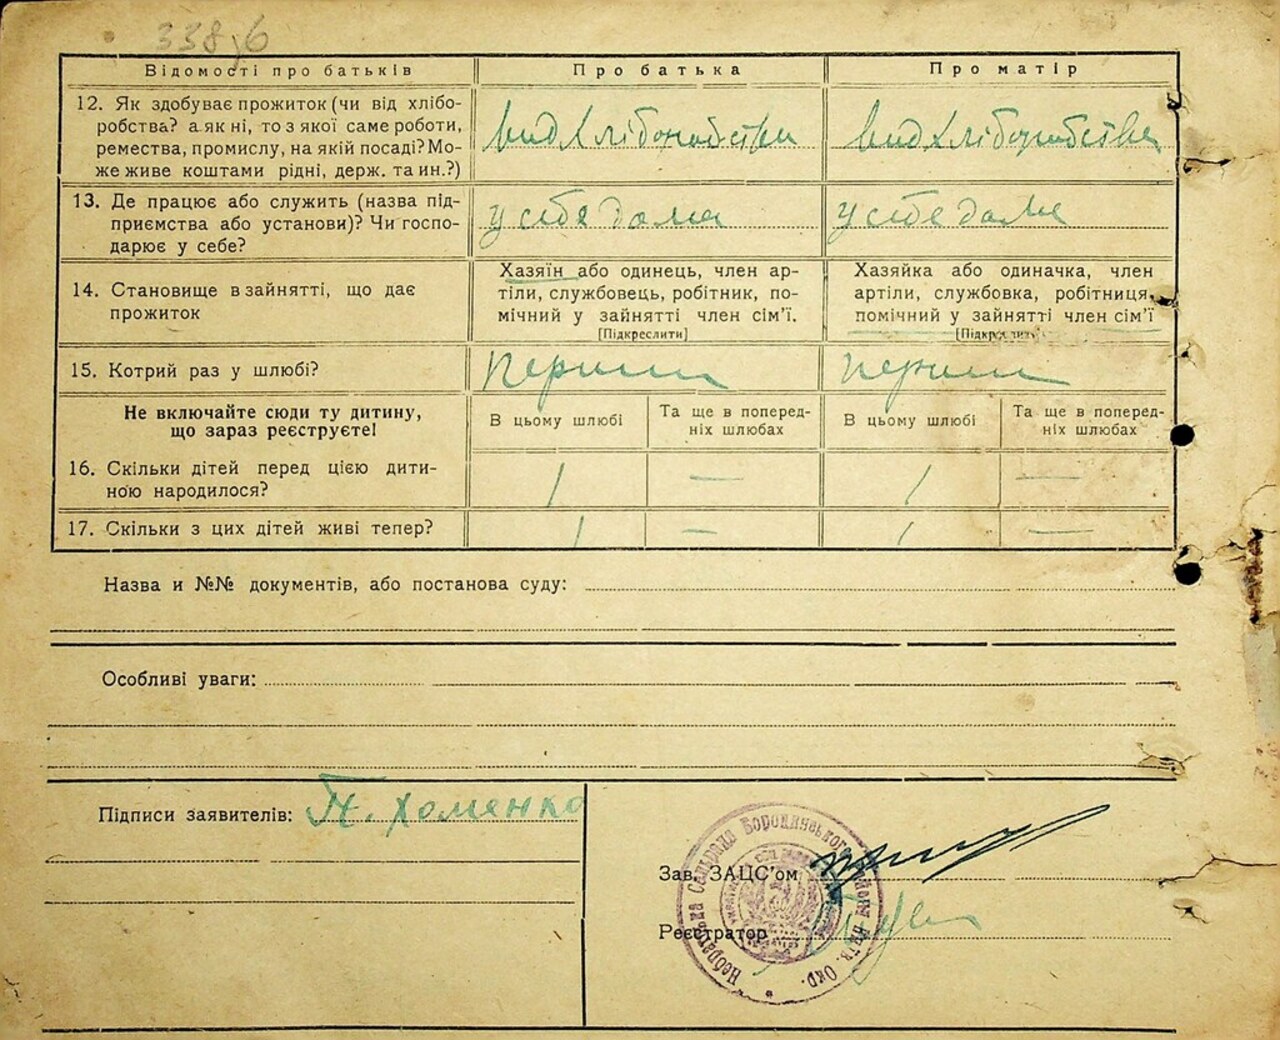 338
Відомості про батьків
Про батька
Про матір
12. Як здобуває прожиток (чи від хлібо-
робства? а як ні, то з якої саме роботи,
ремества, промислу, на якій посаді? Мо-
же живе коштами рідні, держ. та ин.?)
вид хліборобства
вид хліборобства
13. Де працює або служить (назва під-
приємства або установи)? Чи госпо-
дарює у себе?
у себе дома
у себе дома
14. Становище в зайнятті, що дає
прожиток
Хазяїн або одинець, член ар-
тіли, службовець, робітник, по-
мічний у зайнятті член сім'ї.
[Підкреслити]
Хазяйка або одиначка, член
артіли, службовка, робітниця,
помічний у зайнятті член сім'ї
[Підкреслити]
15. Котрий раз у шлюбі?
перший
перший
Не включайте сюди ту дитину,
що зараз реєструєте!
В цьому шлюбі
Та ще в поперед-
ніх шлюбах
В цьому шлюбі
Та ще в поперед-
ніх шлюбах
16. Скільки дітей перед цією дити-
ною народилося?
1
—
1
—
17. Скільки з цих дітей живі тепер?
1
—
1
—
Назва и №№ документів, або постанова суду:
Особливі уваги:
Підписи заявителів: П. Хоменко
Зав. ЗАЦС'ом
Реєстратор
Небратська Сільрада Бородянського Району Київ. Окр.